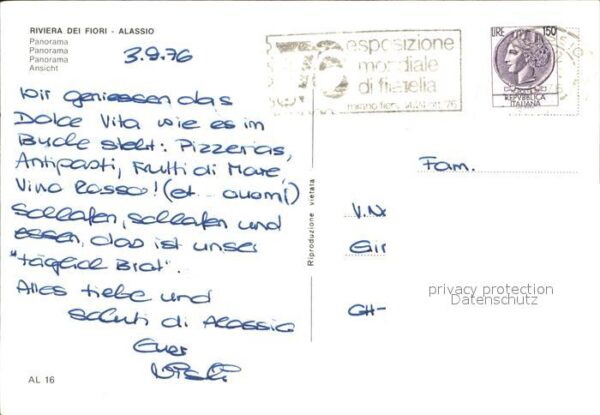 RIVIERA DEI FIORI - ALASSIO
Panorama
Panorama
Panorama
Ansicht
3.9.76
Wir geniessen das
Dolce Vita wie es im
Buche steht: Pizzerias,
Antipasti, Frutti di Mare,
Vino Rosso! (et
Schlafen, schlafen und
essen, das ist unser
"täglich Brot".
Alles Liebe und
Saluti di Alassio
Euer
AL 16
Riproduzione vietata
76 esposizione
mondiale
di filatelia
milano
LIRE 150
REPVBBLICA
ITALIANA
Fam.
V.
Gi
CH-
privacy protection
Datenschutz